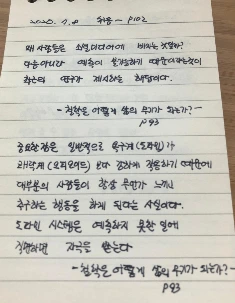 2020. 1. 8 처음 ~ P102
왜 사람들은 소셜미디어에 빠지는 것일까?
다름아니라 예측이 불가능하기 때문이라는것이
최근의 연구가 제시하는 해답이다.
- 철학은 어떻게 삶의 무기가 되는가? -
P93
중요한점은 일반적으로 욕구계(도파민)가
쾌락계(오피오이드) 보다 강하게 작용하기 때문에
대부분의 사람들이 항상 무언가 느끼고
추구하는 행동을 하게 된다는 사실이다.
도파민 시스템은 예측하지 못한 일에
직면하면 자극을 받는다
- 철학은 어떻게 삶의 무기가 되는가? -
P93